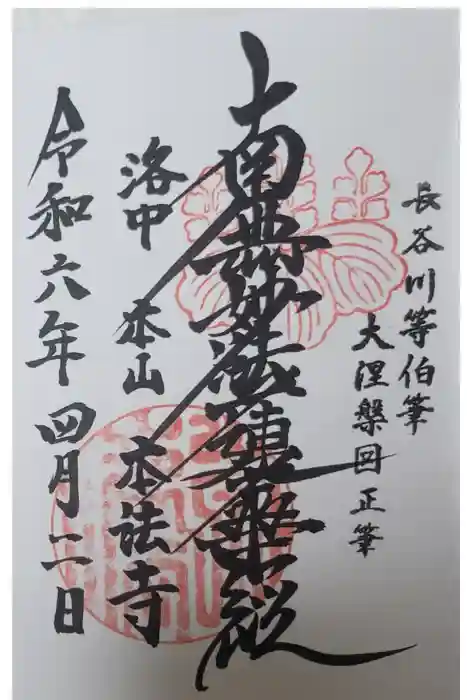 長谷川等伯筆
大涅槃図正筆
南無妙法蓮華経
洛中 本山 本法寺
令和六年四月二日